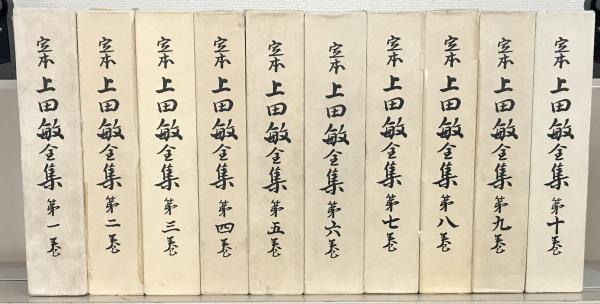 定本 上田敏全集 第一巻
定本 上田敏全集 第二巻
定本 上田敏全集 第三巻
定本 上田敏全集 第四巻
定本 上田敏全集 第五巻
定本 上田敏全集 第六巻
定本 上田敏全集 第七巻
定本 上田敏全集 第八巻
定本 上田敏全集 第九巻
定本 上田敏全集 第十巻